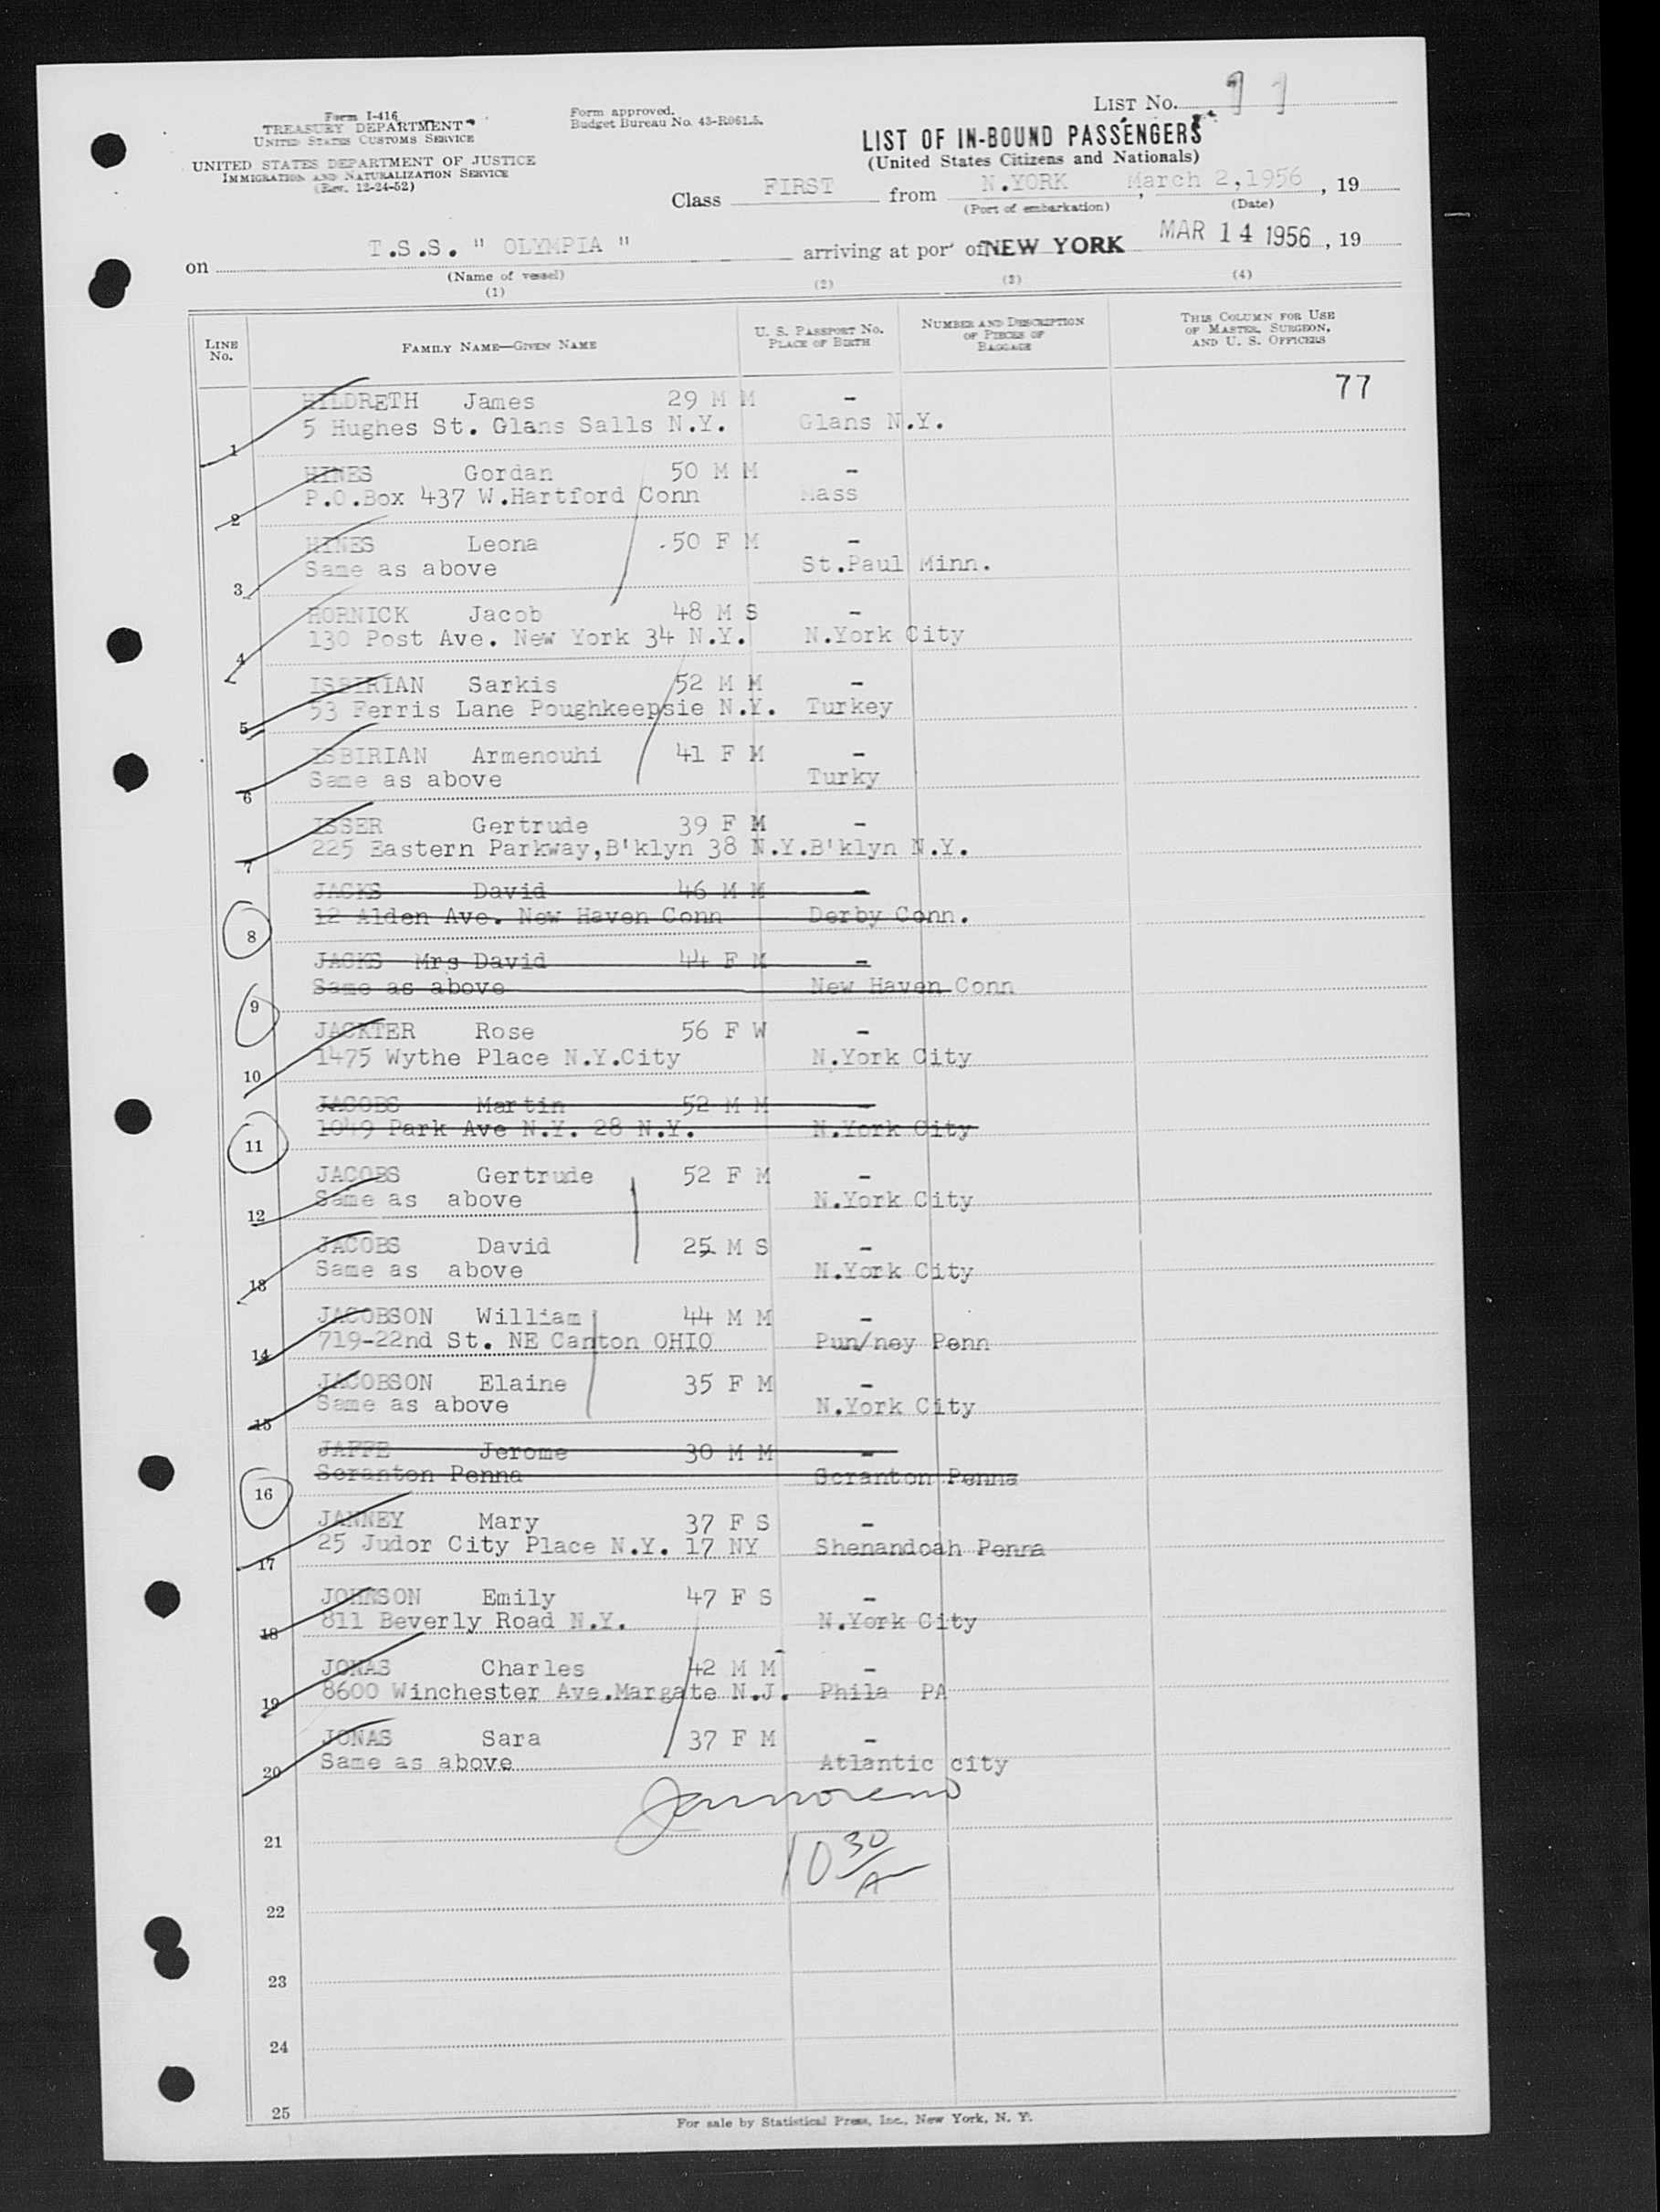 Form I-416
TREASURY DEPARTMENT
UNITED STATES CUSTOMS SERVICE
UNITED STATES DEPARTMENT OF JUSTICE
IMMIGRATION AND NATURALIZATION SERVICE
(Rev. 12-24-52)
Form approved.
Budget Bureau No. 43-R061.5.
LIST No.
LIST OF IN-BOUND PASSENGERS
(United States Citizens and Nationals)
Class FIRST from N.YORK, March 2,1956, 19
(Port of embarkation) (Date)
on T.S.S. " OLYMPIA " arriving at port of NEW YORK MAR 14 1956, 19
(Name of vessel)
(1) (2) (3) (4)
LINE No. FAMILY NAME—GIVEN NAME U. S. PASSPORT No. PLACE OF BIRTH NUMBER AND DESCRIPTION OF PIECES OF BAGGAGE THIS COLUMN FOR USE OF MASTER, SURGEON, AND U. S. OFFICERS
77
HILDRETH James 29 M M -
1 5 Hughes St. Glans Salls N.Y. Glans N.Y.
HINES Gordan 50 M M -
2 P.O.Box 437 W.Hartford Conn Mass
HINES Leona 50 F M -
3 Same as above St.Paul Minn.
HORNICK Jacob 48 M S -
4 130 Post Ave. New York 34 N.Y. N.York City
ISBIRIAN Sarkis 52 M M -
5 53 Ferris Lane Poughkeepsie N.Y. Turkey
ISBIRIAN Armenouhi 41 F M -
6 Same as above Turky
ISSER Gertrude 39 F M -
7 225 Eastern Parkway,B'klyn 38 N.Y.B'klyn N.Y.
JACKS David 46 M M -
8 12 Alden Ave. New Haven Conn Derby Conn.
JACKS Mrs David 44 F M -
9 Same as above New Haven Conn
JACKTER Rose 56 F W -
10 1475 Wythe Place N.Y.City N.York City
JACOBS Martin 52 M M -
11 1049 Park Ave N.Y. 28 N.Y. N.York City
JACOBS Gertrude 52 F M -
12 Same as above N.York City
JACOBS David 25 M S -
13 Same as above N.York City
JACOBSON William 44 M M -
14 719-22nd St. NE Canton OHIO Pun/ney Penn
JACOBSON Elaine 35 F M -
15 Same as above N.York City
JAFFE Jerome 30 M M -
16 Scranton Penna Scranton Penna
JANNEY Mary 37 F S -
17 25 Judor City Place N.Y. 17 NY Shenandoah Penna
JOHNSON Emily 47 F S -
18 811 Beverly Road N.Y. N.York City
JONAS Charles 42 M M -
19 8600 Winchester Ave.Margate N.J. Phila PA
JONAS Sara 37 F M -
20 Same as above Atlantic city
21
10 30/A
22
23
24
25
For sale by Statistical Press, Inc., New York, N. Y.